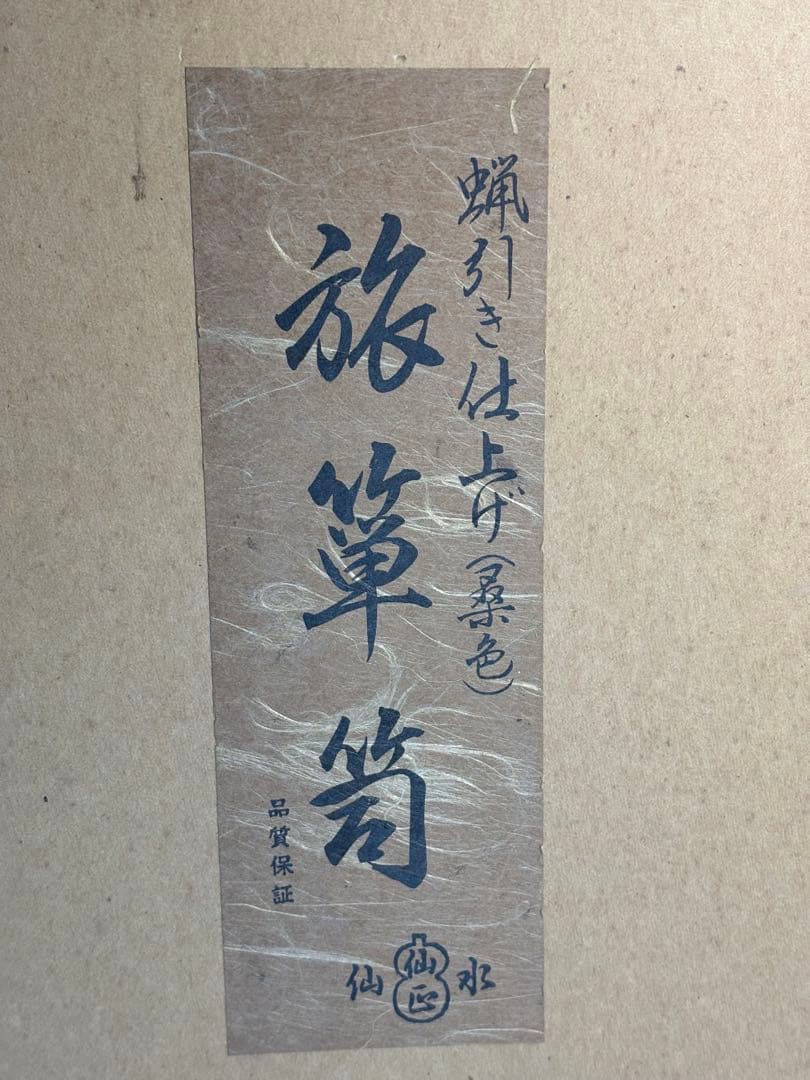 蝋引き仕上げ(桑色)
旅箪笥
品質保証
水
仙正
仙